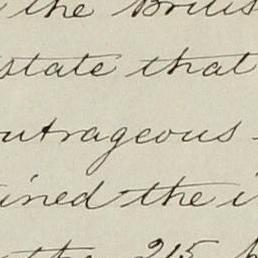 the British
state that
outrageous
ined the i
the 215